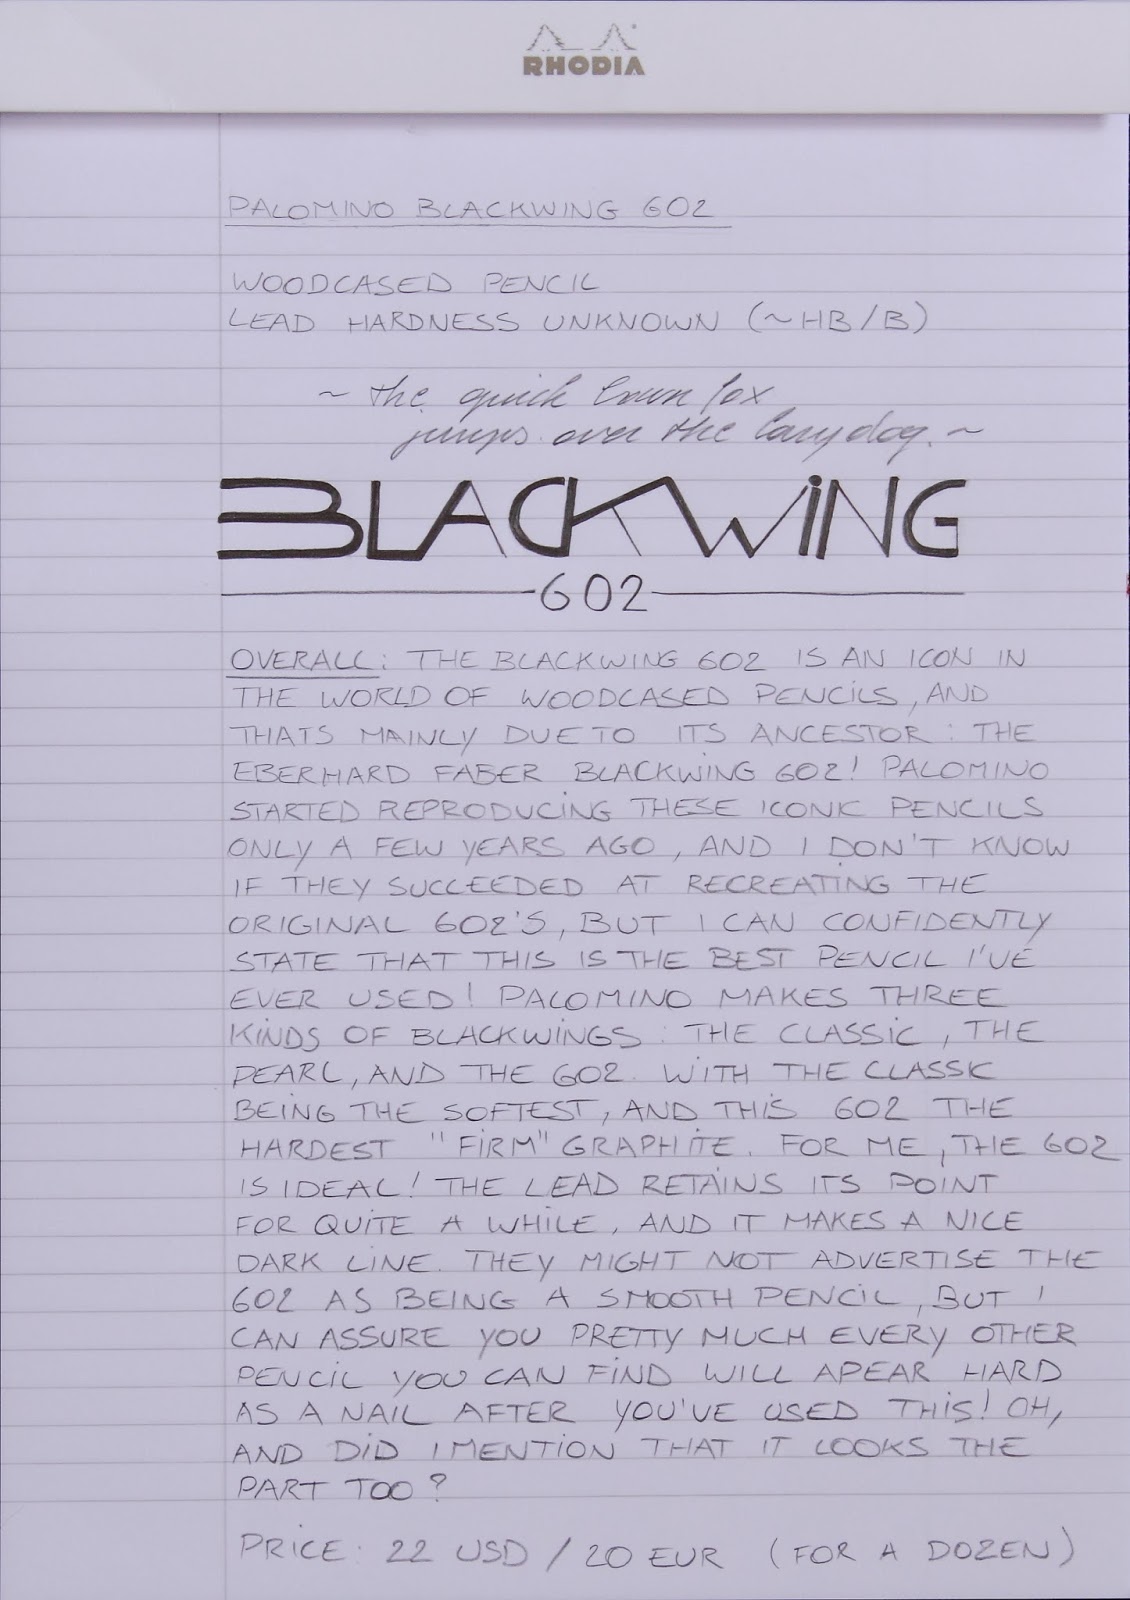 RHODIA
PALOMINO BLACKWING 602
WOODCASED PENCIL
LEAD HARDNESS UNKNOWN (~HB/B)
~ the quick brown fox
jumps over the lazy dog. ~
BLACKWING
602
OVERALL: THE BLACKWING 602 IS AN ICON IN
THE WORLD OF WOODCASED PENCILS, AND
THATS MAINLY DUE TO ITS ANCESTOR: THE
EBERHARD FABER BLACKWING 602! PALOMINO
STARTED REPRODUCING THESE ICONIC PENCILS
ONLY A FEW YEARS AGO, AND I DON'T KNOW
IF THEY SUCCEEDED AT RECREATING THE
ORIGINAL 602'S, BUT I CAN CONFIDENTLY
STATE THAT THIS IS THE BEST PENCIL I'VE
EVER USED! PALOMINO MAKES THREE
KINDS OF BLACKWINGS: THE CLASSIC, THE
PEARL, AND THE 602. WITH THE CLASSIC
BEING THE SOFTEST, AND THIS 602 THE
HARDEST "FIRM" GRAPHITE. FOR ME, THE 602
IS IDEAL! THE LEAD RETAINS ITS POINT
FOR QUITE A WHILE, AND IT MAKES A NICE
DARK LINE. THEY MIGHT NOT ADVERTISE THE
602 AS BEING A SMOOTH PENCIL, BUT I
CAN ASSURE YOU PRETTY MUCH EVERY OTHER
PENCIL YOU CAN FIND WILL APEAR HARD
AS A NAIL AFTER YOU'VE USED THIS! OH,
AND DID I MENTION THAT IT LOOKS THE
PART TOO?
PRICE: 22 USD / 20 EUR (FOR A DOZEN)